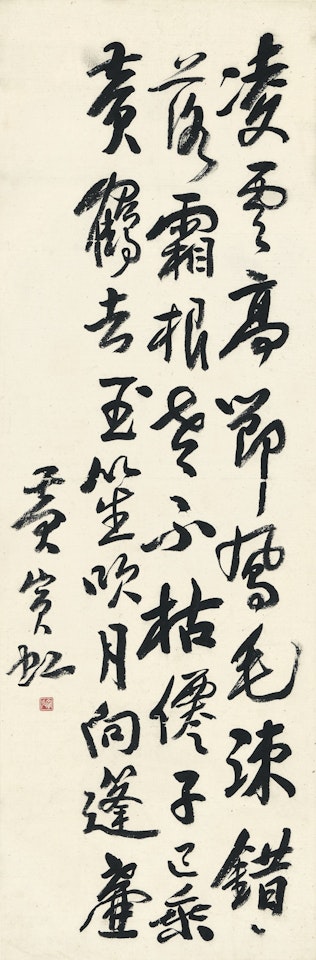 凌雲高節鳳毛疎錯
落霜根老不枯僊子已乘
黃鶴去玉笙吹月向蓬壺
黃賓虹